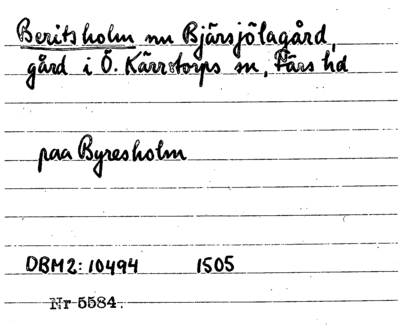 Beritsholm nu Bjärsjölagård,
gård i Ö. Kärrstorps sn, Färs hd
paa Byresholm
DBM2: 10494 1505
Nr 5584.